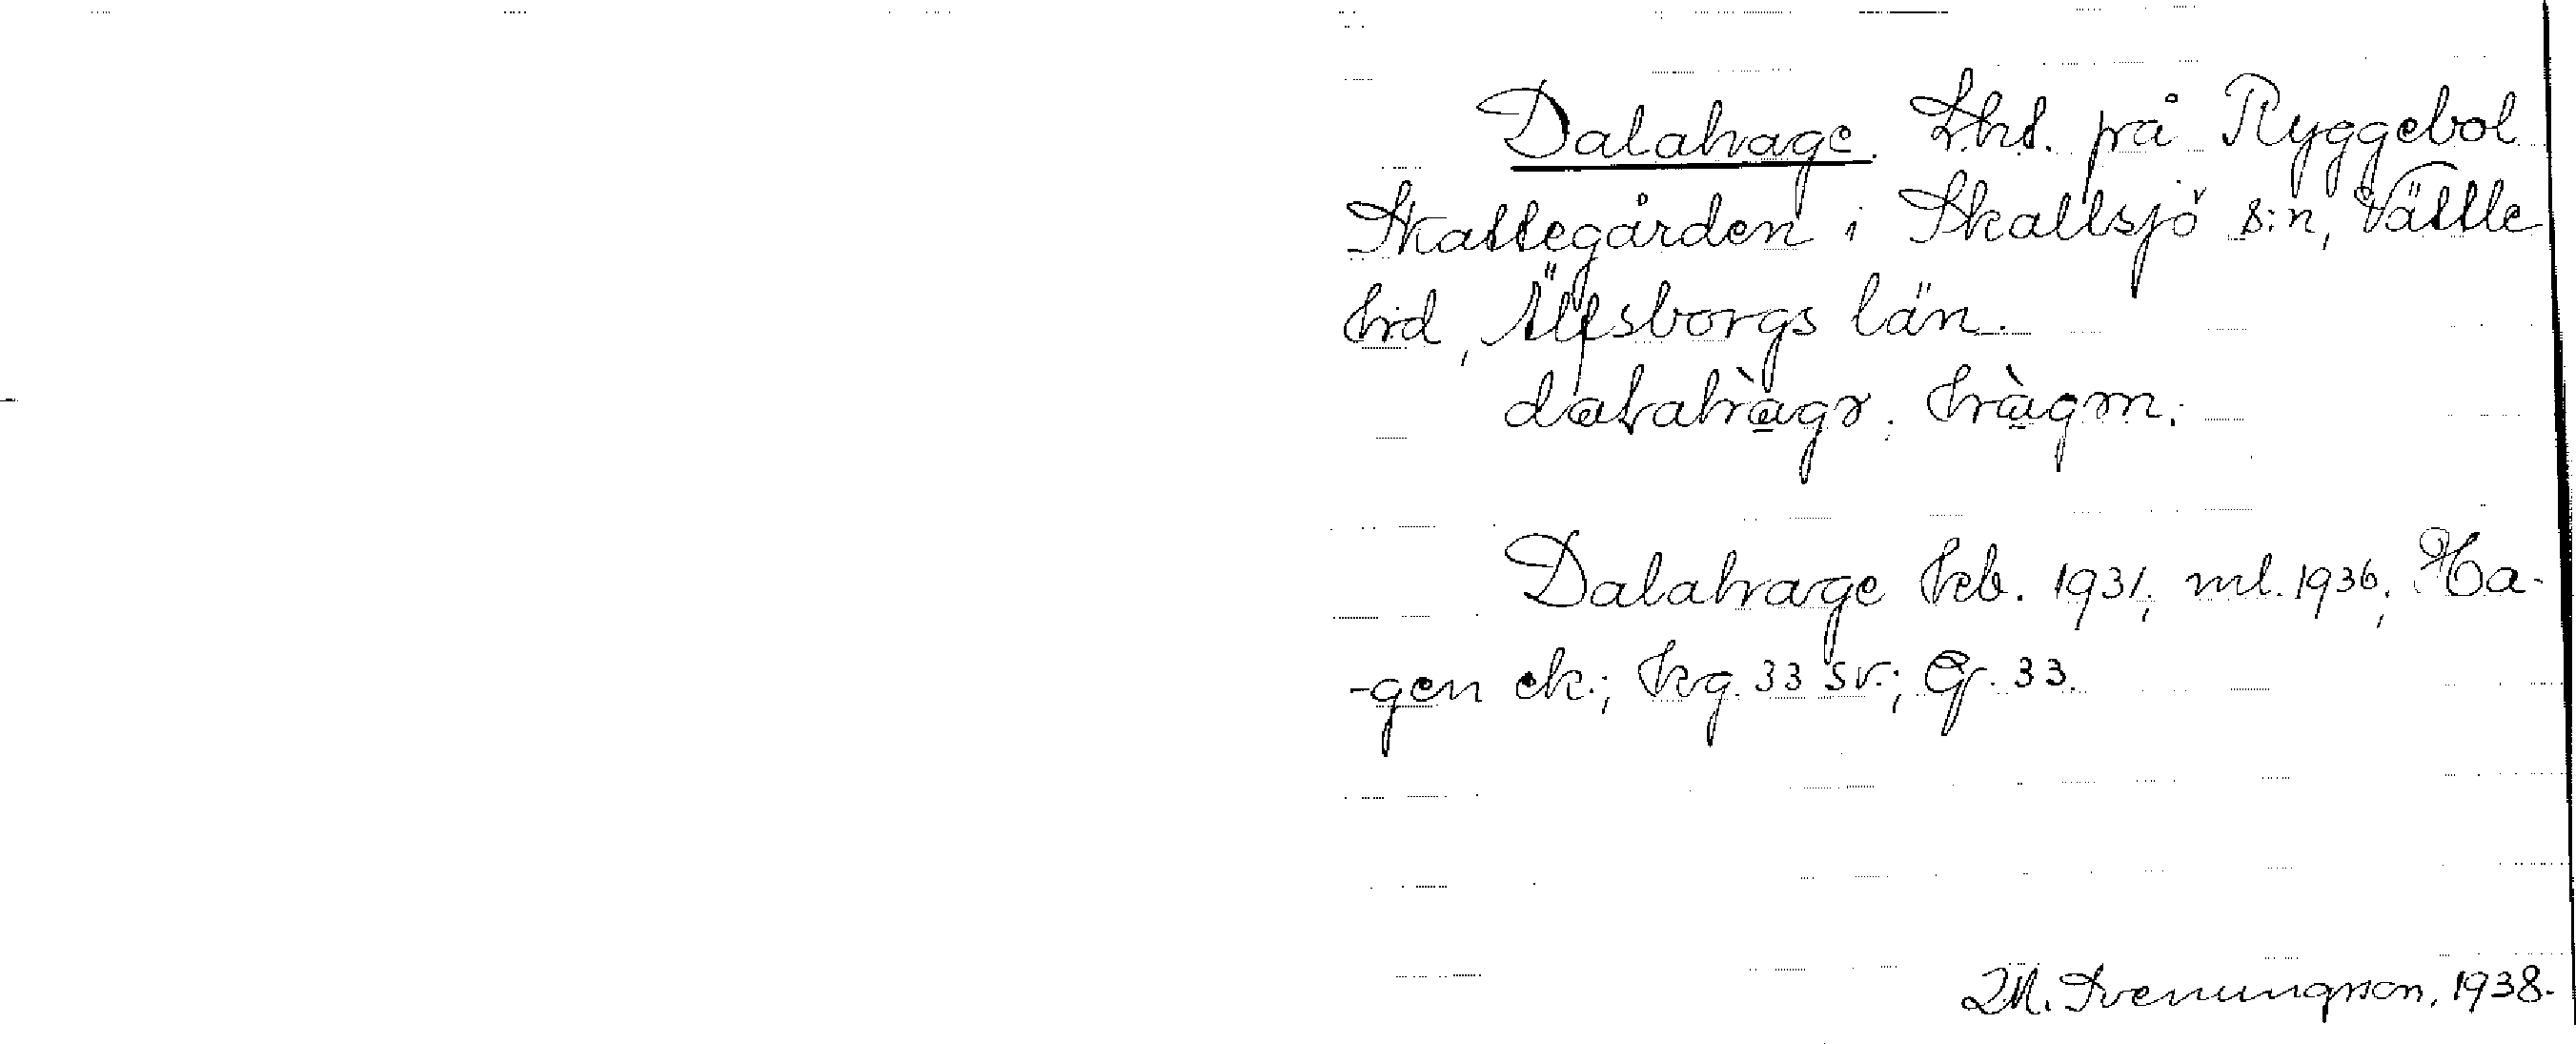 Dalahage. Lht. på Ryggebol
Skattegården i Skallsjö s:n, Vättle
hd, Älfsborgs län.
Dalahage kb. 1931; ml. 1936; Ha-
-gen ek.; kg. 33 sv.; Gr. 33.
M. Svenungsson, 1938.